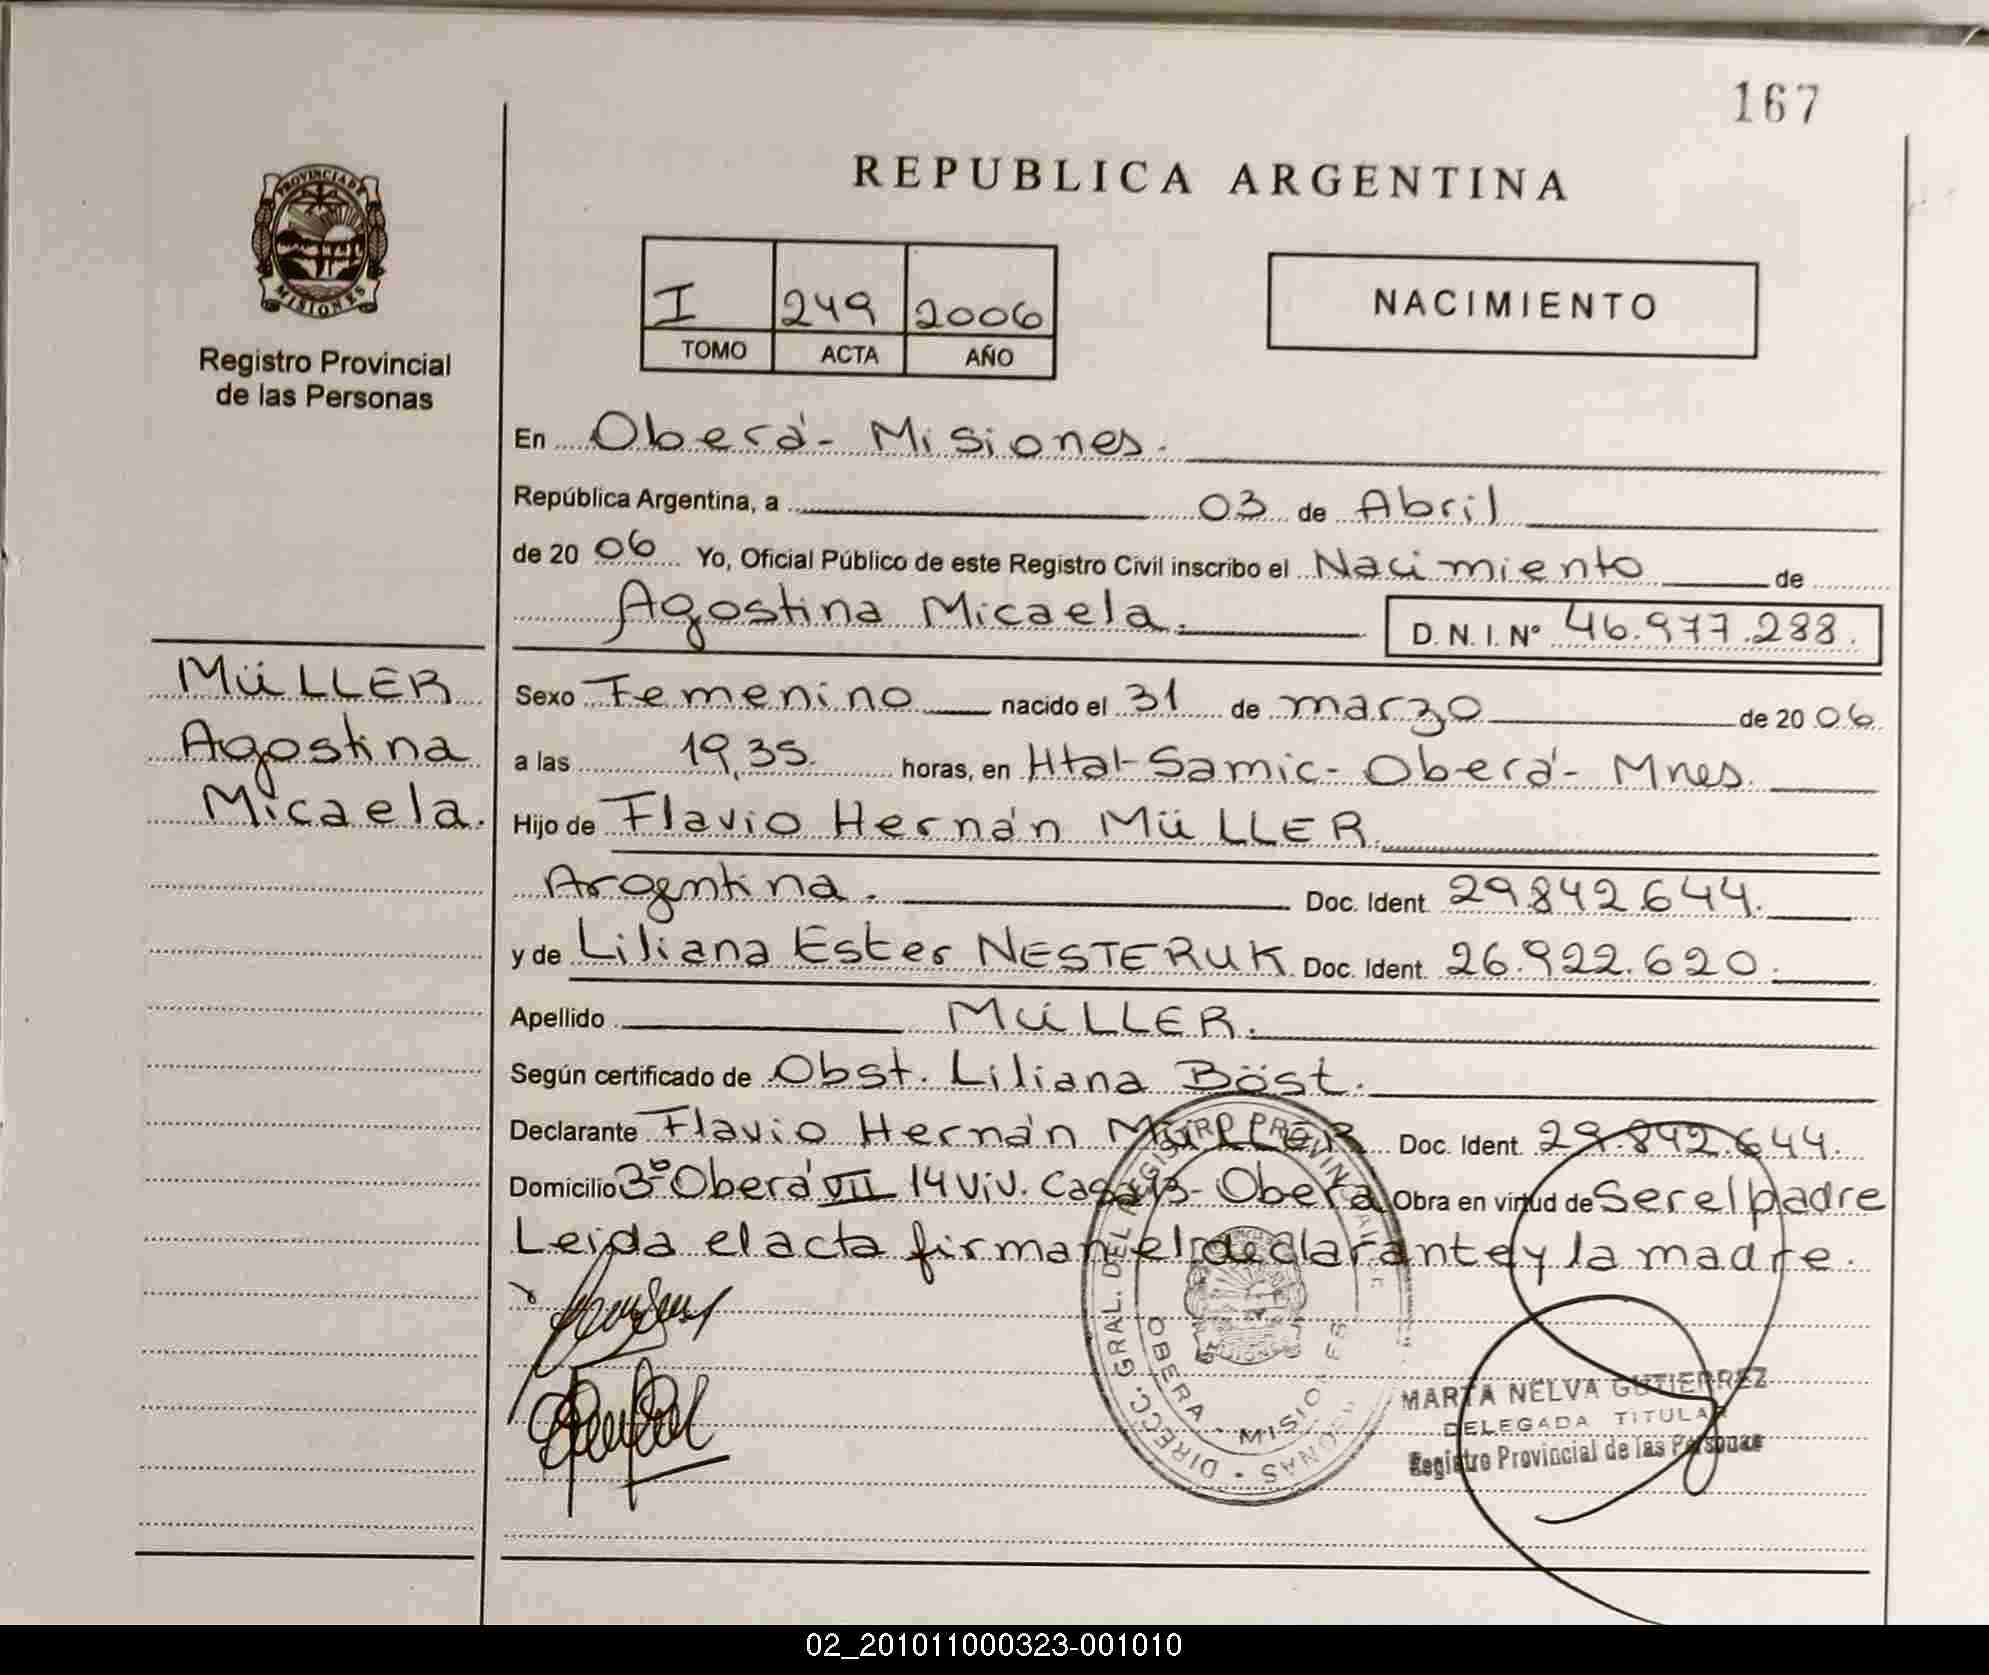 167
PROVINCIA DE
MISIONES
Registro Provincial
de las Personas
REPUBLICA ARGENTINA
I 249 2006
TOMO ACTA AÑO
NACIMIENTO
En Oberá - Misiones.
República Argentina, a 03 de Abril
de 2006 Yo, Oficial Público de este Registro Civil inscribo el Nacimiento de
Agostina Micaela. D. N. I. Nº 46.977.288.
MüLLER
Agostina
Micaela.
Sexo Femenino nacido el 31 de marzo de 2006
a las 19,35 horas, en Htal-Samic- Oberá- Mnes.
Hijo de Flavio Hernán MüLLER.
Argentina. Doc. Ident. 29.842.644.
y de Liliana Ester NESTERUK Doc. Ident. 26.922.620.
Apellido MüLLER.
Según certificado de Obst. Liliana Böst.
Declarante Flavio Hernán MüLLER Doc. Ident. 29.842.644.
Domicilio Bº Oberá VII 14 Viv. Casa - Oberá Obra en virtud de Ser el padre
Leida el acta firman el declarante y la madre.
DIRECC. GRAL. DEL REGISTRO PROVINCIAL PERSONAS
OBERA - MISIONES
MARTA NELVA GUTIERREZ
DELEGADA TITULAR
Registro Provincial de las Personas
02_201011000323-001010